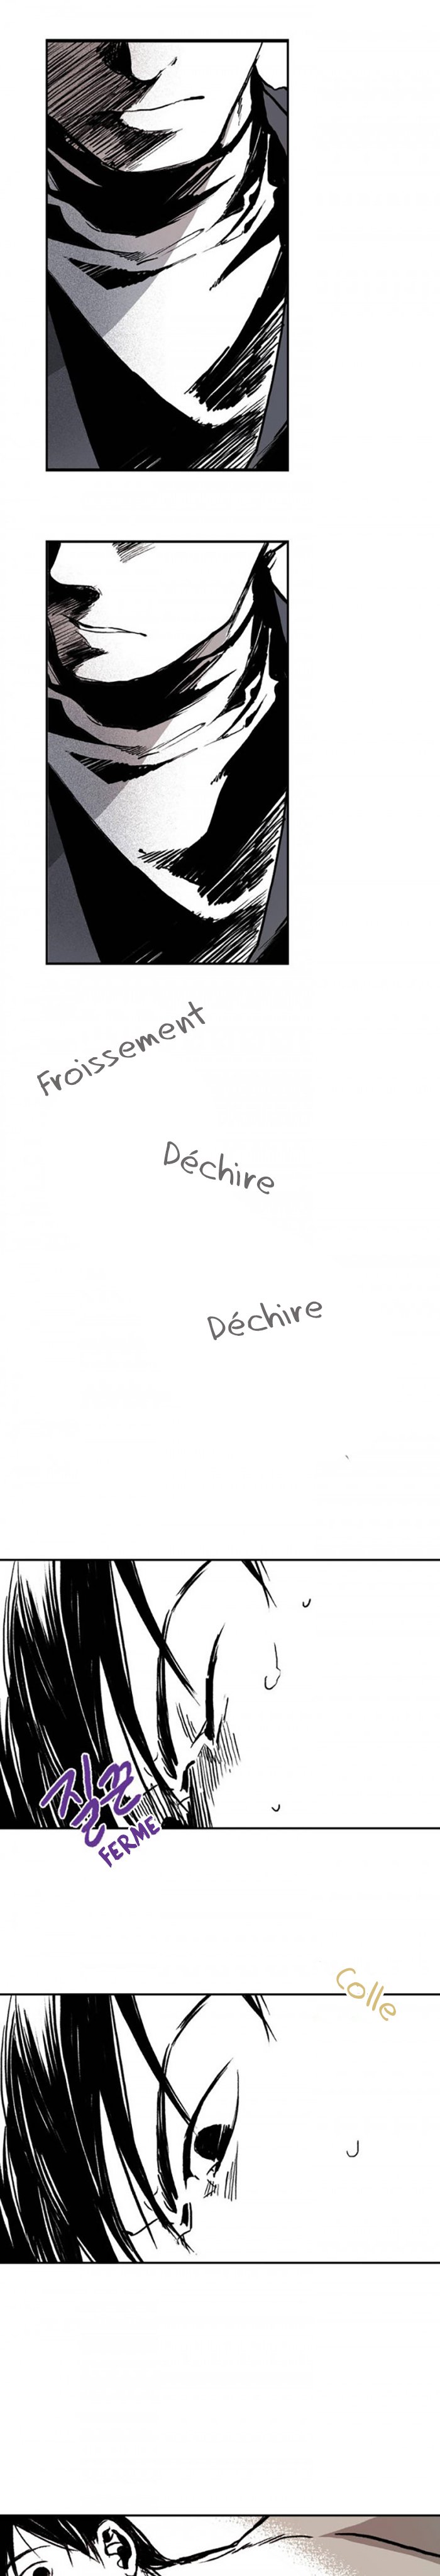 Froissement
Déchire
Déchire
질끈
FERME
Colle